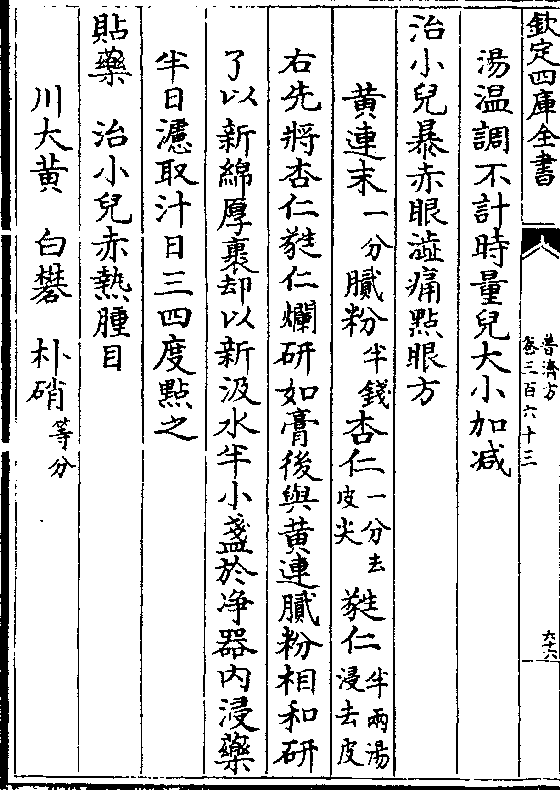 欽定四庫全書
普濟方
卷三百六十三
六十六
湯温調不計時量兒大小加减
治小兒暴赤眼澁痛點眼方
黄連末一分膩粉半錢杏仁一分去皮尖蕤仁半兩湯浸去皮
右先將杏仁蕤仁爛研如膏後與黄連膩粉相和研
了以新綿厚裹却以新汲水半小盞於净器内浸藥
半日濾取汁日三四度點之
貼藥　治小兒赤熱腫目
川大黄　白礬　朴硝等分